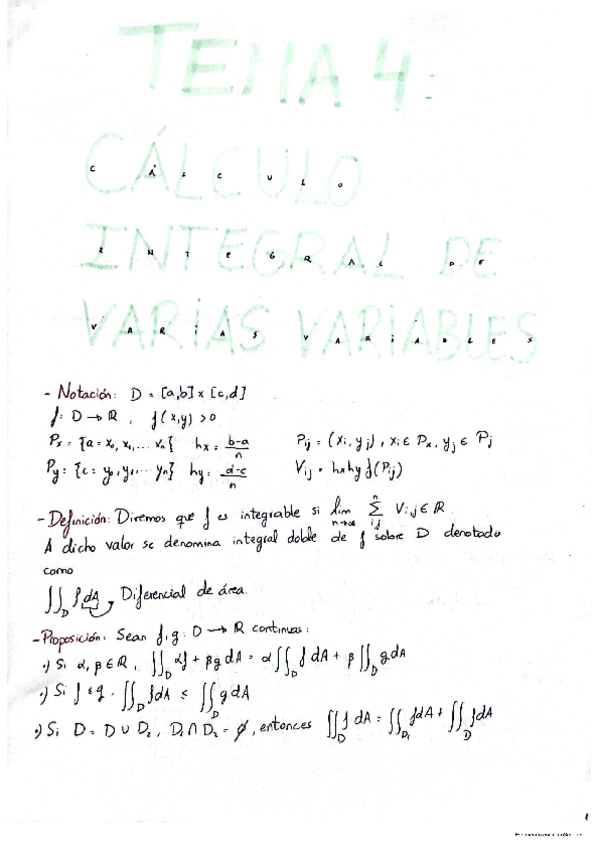 TEMA 4:
CÁLCULO
INTEGRAL DE
VARIAS VARIABLES
- Notación: D = [a,b] x [c,d]
f: D → ℝ , f(x,y) > 0
Px = {a = x₀, x₁, ... xn} hx = b-a/n Pij = (xi, yj), xi ∈ Px, yj ∈ Pj
Py = {c = y₀, y₁, ... yn} hy = d-c/n Vij = hx hy f(Pij)
- Definición: Diremos que f es integrable si lim n→∞ Σ i,j n Vi,j ∈ ℝ
A dicho valor se denomina integral doble de f sobre D denotado
como
∬_D f dA Diferencial de área.
- Proposición: Sean f, g: D → ℝ continuas:
·) Si α, β ∈ ℝ, ∬_D αf + βg dA = α ∬_D f dA + β ∬_D g dA
·) Si f ≤ g · ∬_D f dA ≤ ∬_D g dA
·) Si D = D ∪ D₂, D₁ ∩ D₂ = ∅, entonces ∬_D f dA = ∬_D₁ f dA + ∬_D f dA
1